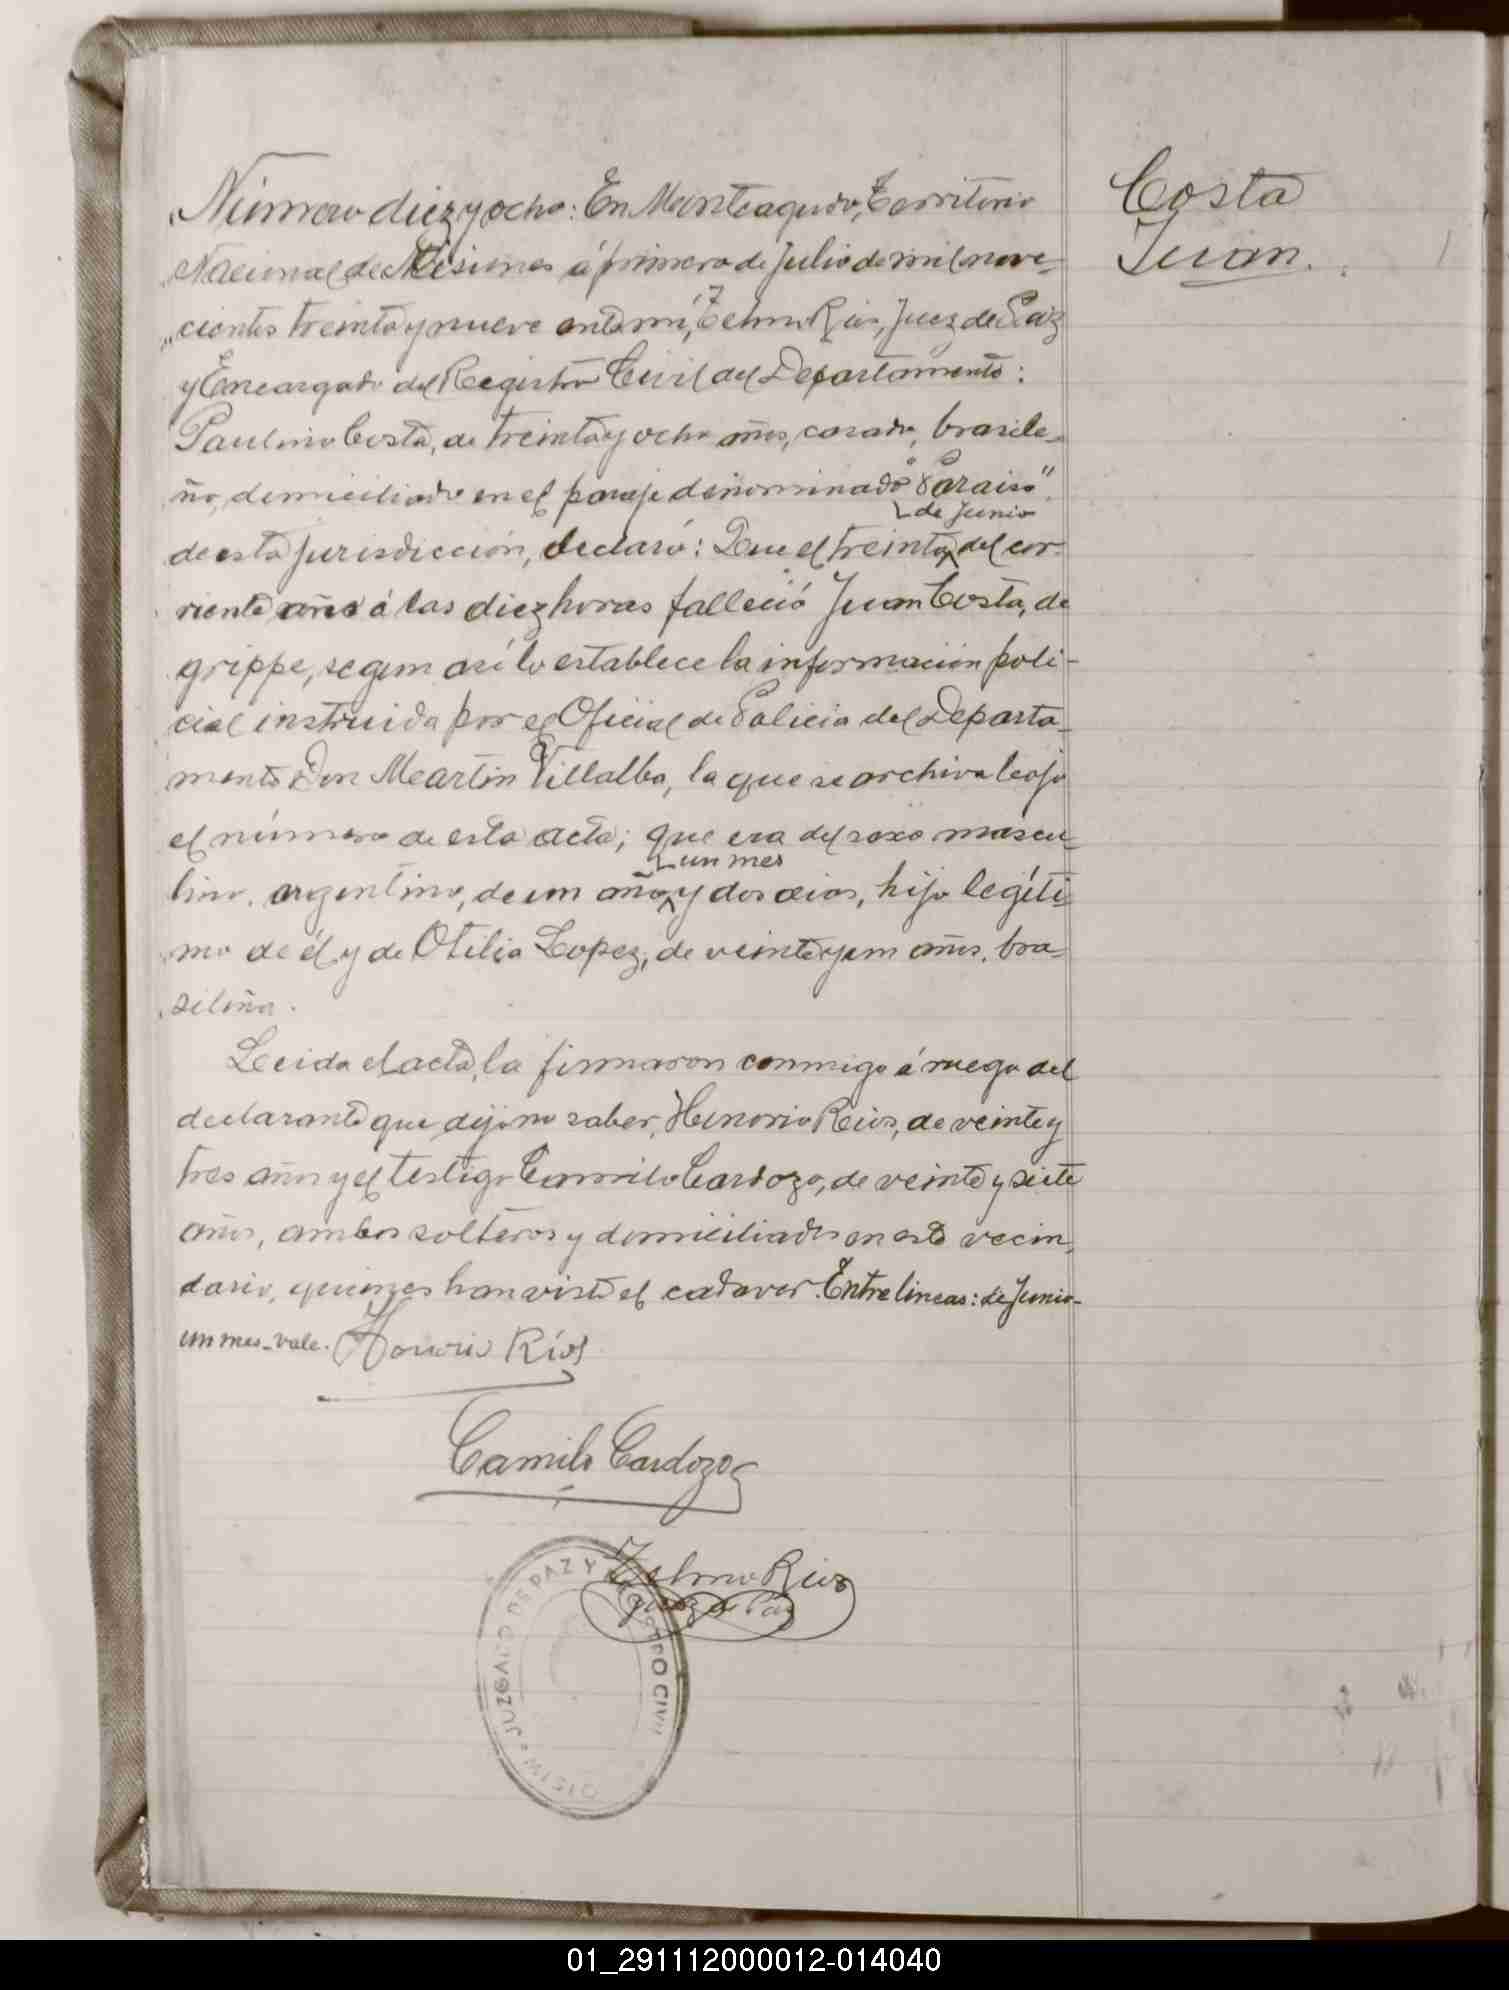 Número diez y ocho: En Monteagudo, Territorio
Nacional de Misiones á primero de Julio de mil nove-
cientos treinta y nueve ante mi, Telmo Rios, Juez de Paz
y Encargado del Registro Civil del Departamento:
Paulino Costa, de treinta y ocho años, casado, brasile-
ño, domiciliado en el paraje denominado "Paraiso"
de Junio
de esta jurisdicción, declaró: Que el treinta del cor-
riente año á las diez horas falleció Juan Costa, de
grippe, segun asi lo establece la información poli-
cial instruida por el Oficial de Policia del Departa-
mento Don Martin Villalba, la que se archiva bajo
el número de esta acta; que era del sexo mascu-
un mes
lino, argentino, de un año y dos dias, hijo legíti-
mo de él y de Otilia Lopez, de veinte y un años, bra-
sileña.
Leida el acta, la firmaron conmigo á ruego del
declarante que dijo no saber, Honorio Rios, de veinte y
tres años y el testigo Camilo Cardozo, de veinte y siete
años, ambos solteros y domiciliados en este vecin-
dario, quienes han visto el cadaver. Entre lineas: de Junio-
un mes-vale. Honorio Ríos
Camilo Cardozo
Telmo Rios
Juez de Paz
JUZGADO DE PAZ Y REGISTRO CIVIL
Costa
Juan.
01_291112000012-014040